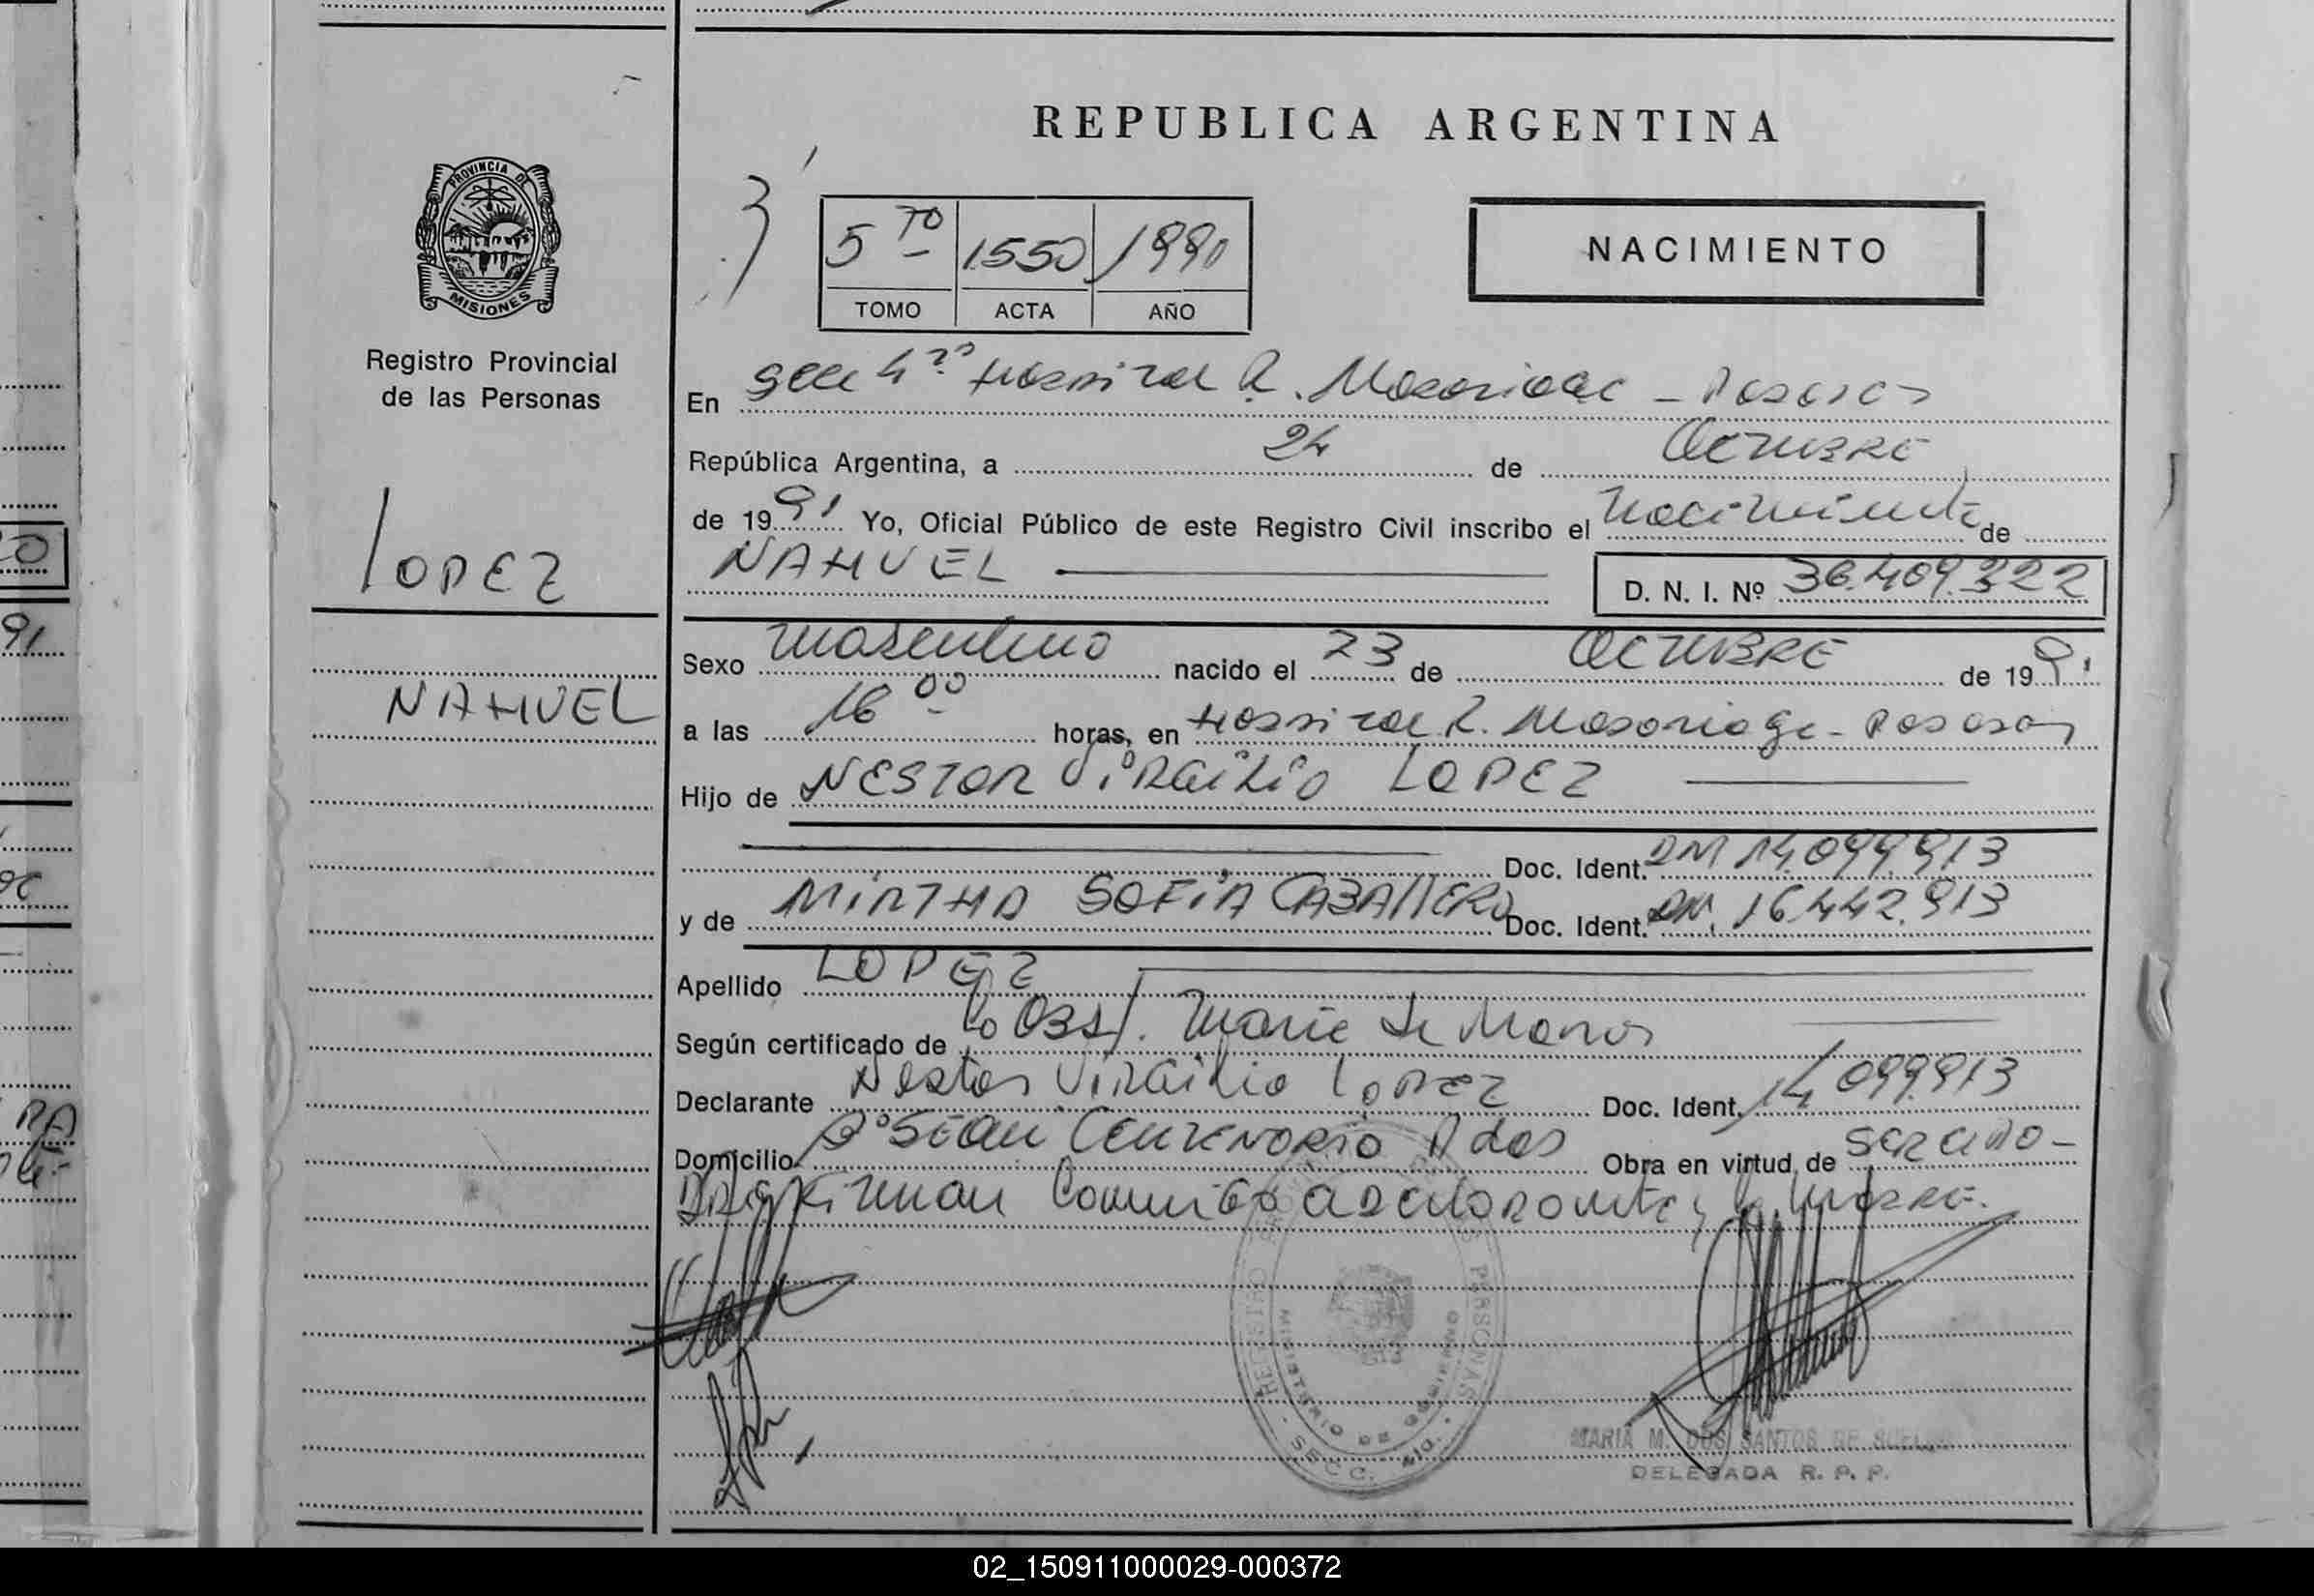 REPUBLICA ARGENTINA
PROVINCIA DE
MISIONES
Registro Provincial
de las Personas
LOPEZ
NAHUEL
5 TO 1550 1990
TOMO ACTA AÑO
NACIMIENTO
En Secc 4ta Hospital R. Madariaga - Posadas
República Argentina, a 24 de OCTUBRE
de 1991 Yo, Oficial Público de este Registro Civil inscribo el nacimiento de
NAHUEL D. N. I. Nº 36.409.322
Sexo masculino nacido el 23 de OCTUBRE de 1991
a las 16 00 horas, en Hospital R. Madariaga - Posadas
Hijo de NESTOR VIRGILIO LOPEZ
Doc. Ident. DNI 14.099.913
y de MIRTHA SOFIA CABALLERO Doc. Ident. DNI 16.442.913
Apellido LOPEZ
Según certificado de la Obst. Maria de
Declarante Nestor VIRGILIO LOPEZ Doc. Ident. 14.099.913
Domicilio CENTENARIO Pdas Obra en virtud de
la madre.
REGISTRO PROVINCIAL DE LAS PERSONAS
MINISTERIO DE GOBIERNO
SECC.
MARIA M. DOS SANTOS DE
DELEGADA R. P. P.
91
02_150911000029-000372